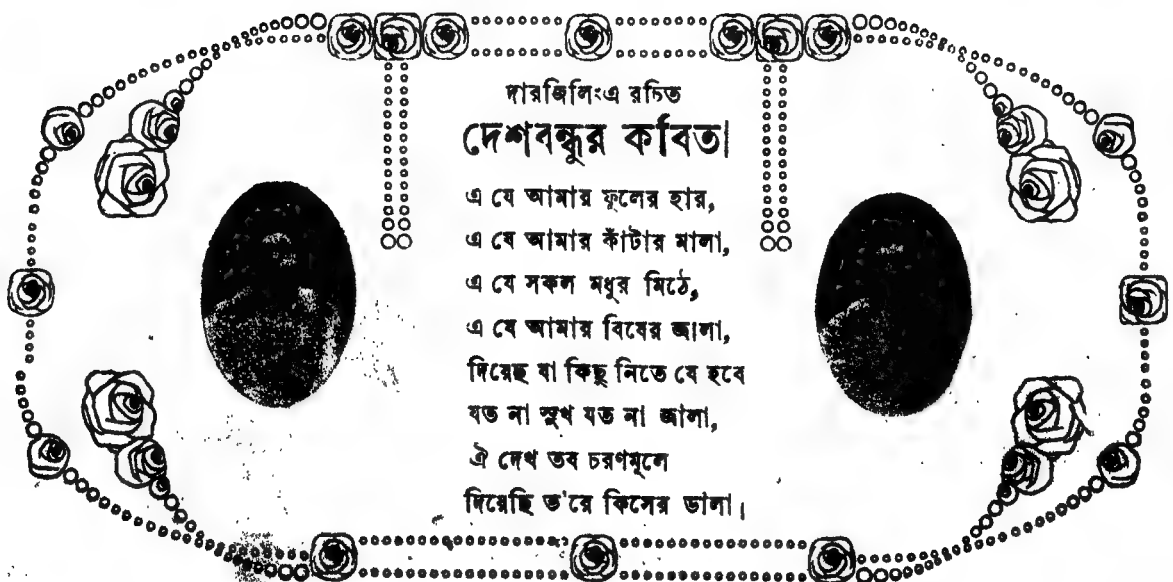 দারজিলিংএ রচিত
দেশবন্ধুর কবিতা
এ যে আমার ফুলের হার,
এ যে আমার কাঁটার মালা,
এ যে সকল মধুর মিঠে,
এ যে আমার বিষের জালা,
দিয়েছ যা কিছু নিতে যে হবে
যত না সুখ যত না জালা,
ঐ দেখ তব চরণমূলে
দিয়েছি ভ'রে কিসের ডালা।